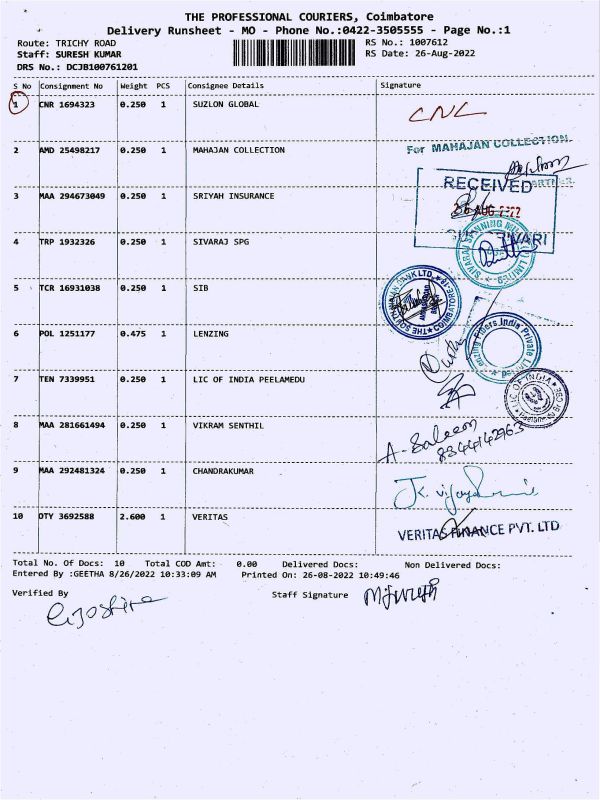 THE PROFESSIONAL COURIERS, Coimbatore
Delivery Runsheet - MO - Phone No.:0422-3505555 - Page No.:1
Route: TRICHY ROAD
RS No.: 1007612
Staff: SURESH KUMAR
RS Date: 26-Aug-2022
DRS No.: DCJB100761201
S No Consignment No Weight PCS Consignee Details Signature
1 CNR 1694323 0.250 1 SUZLON GLOBAL CNL
2 AMD 25498217 0.250 1 MAHAJAN COLLECTION For MAHAJAN COLLECTION.
PARTNER.
3 MAA 294673049 0.250 1 SRIYAH INSURANCE RECEIVED
26 AUG 2022
4 TRP 1932326 0.250 1 SIVARAJ SPG
5 TCR 16931038 0.250 1 SIB
6 POL 1251177 0.475 1 LENZING
7 TEN 7339951 0.250 1 LIC OF INDIA PEELAMEDU
LIC OF INDIA
8 MAA 281661494 0.250 1 VIKRAM SENTHIL A. Saleem
8344142963
9 MAA 292481324 0.250 1 CHANDRAKUMAR
10 OTY 3692588 2.600 1 VERITAS VERITAS FINANCE PVT. LTD
Total No. Of Docs: 10 Total COD Amt: 0.00 Delivered Docs: Non Delivered Docs:
Entered By :GEETHA 8/26/2022 10:33:09 AM Printed On: 26-08-2022 10:49:46
Verified By Staff Signature